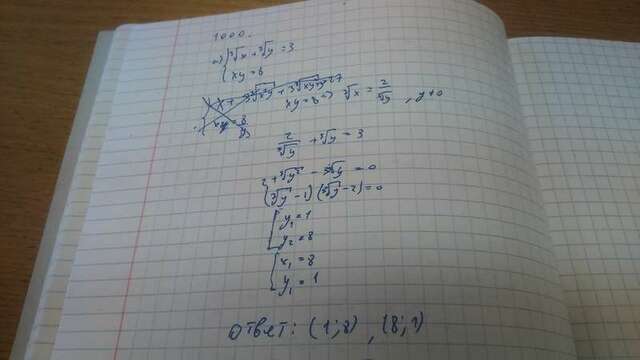 1000.
а) { ∛x + ∛y = 3
{ xy = 8
xy = 8 => ∛x = 2/∛y , y ≠ 0
2/∛y + ∛y = 3
2 + ∛y² - 3∛y = 0
(∛y - 1)(∛y - 2) = 0
[ y₁ = 1
[ y₂ = 8
{ x₁ = 8
{ y₁ = 1
Ответ: (1; 8) , (8; 1)